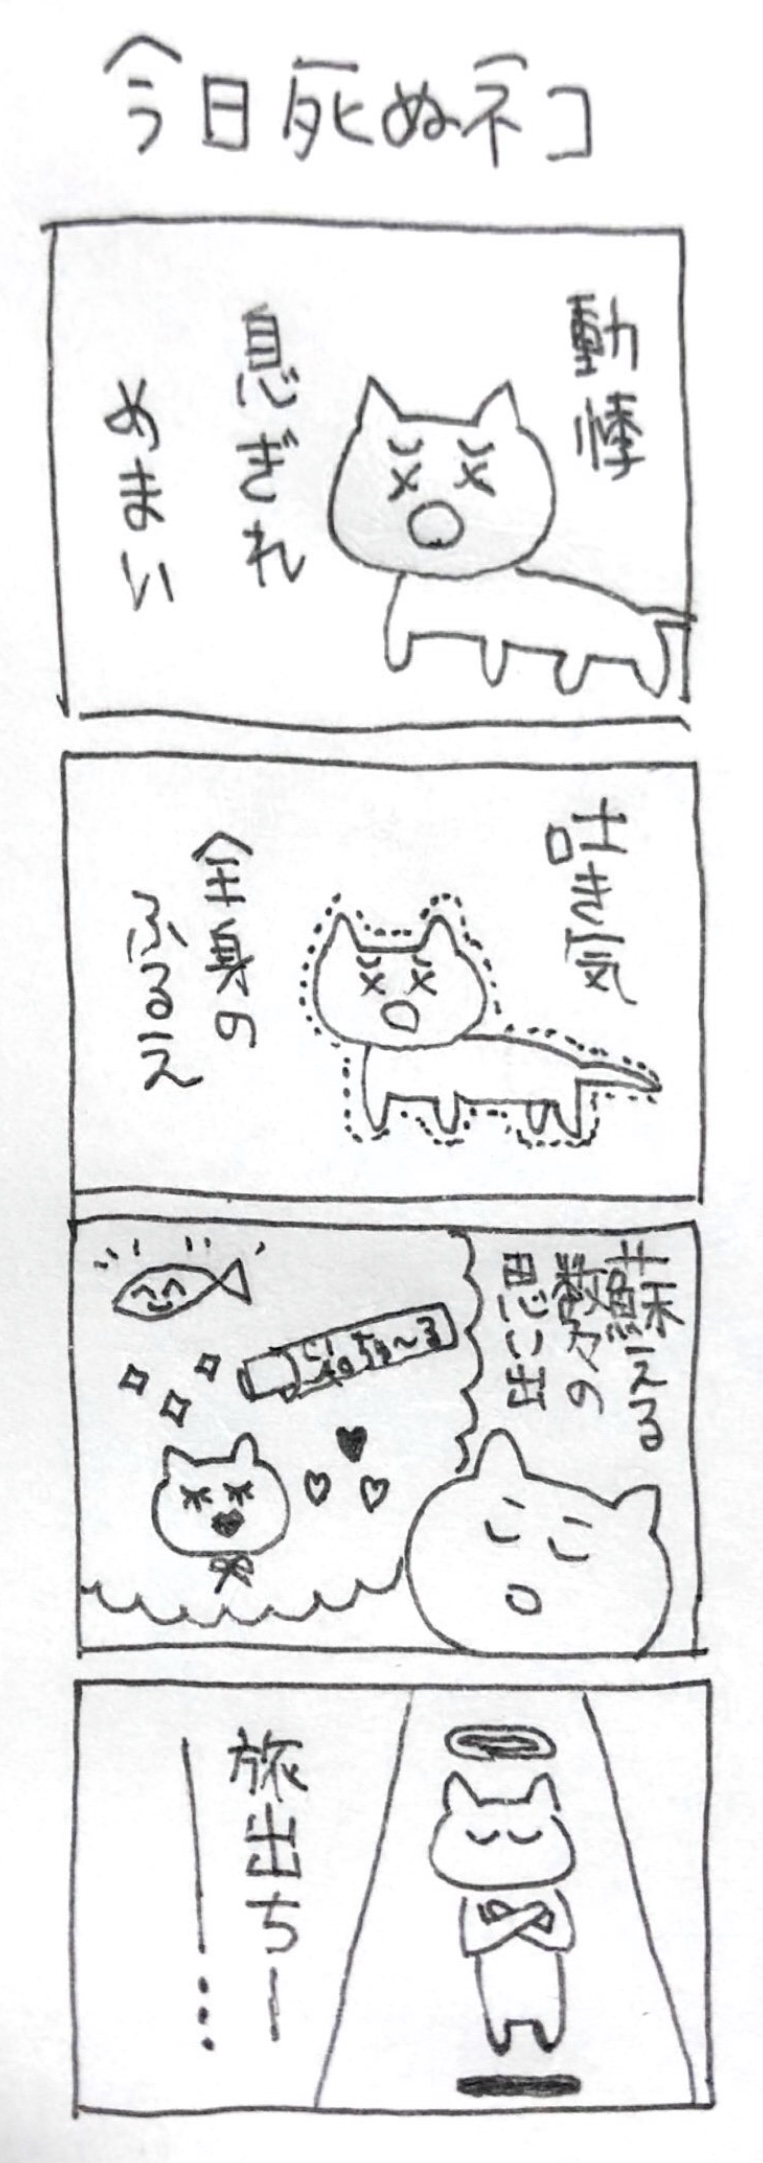 今日死ぬネコ
動悸
息ぎれ
めまい
吐き気
全身の
ふるえ
蘇える
数々の
思い出
旅出ちー
―…